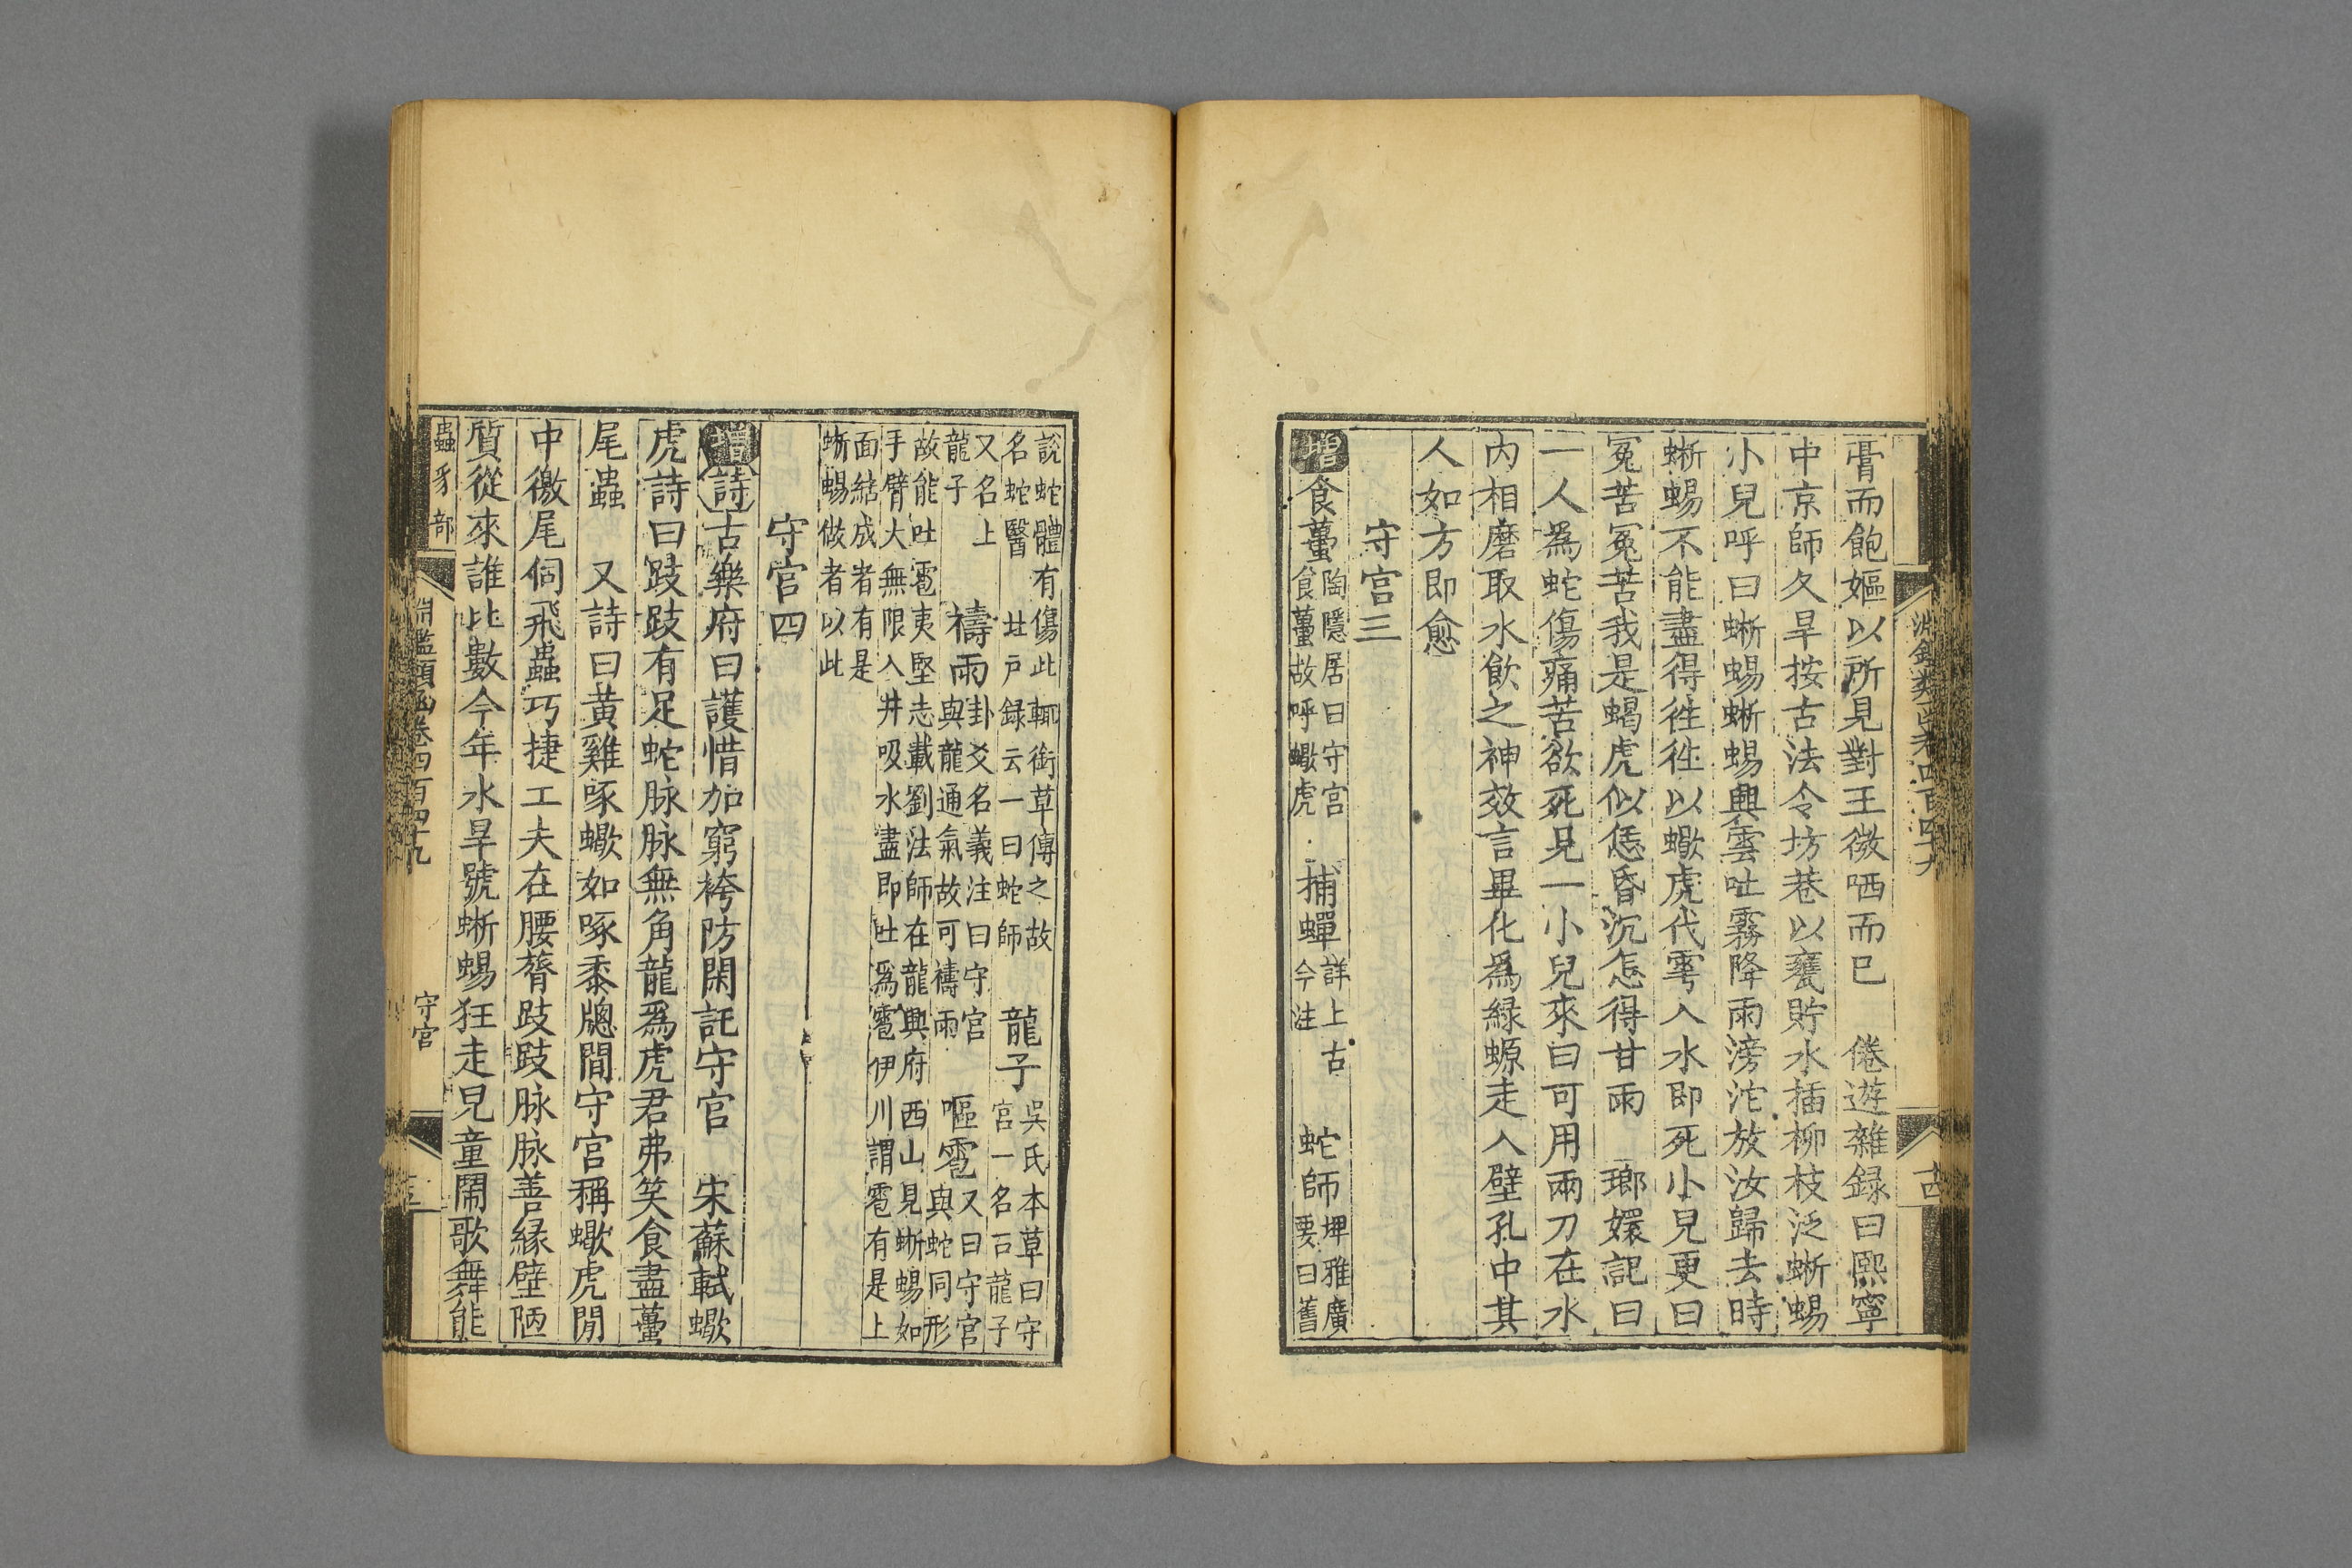 淵鑑類函卷四百四十九
十四
脣而飽嫗以所見對王微哂而已　倦遊雜録曰熙寧
中京師久旱按古法令坊巷以甕貯水插柳枝泛蜥蜴
小兒呼曰蜥蜴蜥蜴興雲吐霧降雨滂沱放汝歸去時
蜥蜴不能盡得徃徃以蠍虎代雩入水即死小兒更曰
冤苦冤苦我是蝎虎似恁昏沉怎得甘雨　瑯嬛記曰
一人爲蛇傷痛苦欲死兄一小兒來曰可用兩刀在水
内相磨取水飲之神效言畢化爲緑螈走入壁孔中其
人如方即愈
守宫三
增食蠆陶隱居曰守宫
食蠆故呼蠍虎
捕蟬詳上古
今注
蛇師埤雅廣
要曰舊
說蛇體有傷此輒銜草傅之故
名蛇醫　北戸録云一曰蛇師
龍子吳氏本草曰守
宫一名石龍子
又名上
龍子
禱雨卦爻名義注曰守宫
與龍通氣故可禱雨
嘔雹又曰守宫
與蛇同形
故能吐雹夷堅志載劉法師在龍興府西山見蜥蜴如
手臂大無限入井吸水盡即吐爲雹伊川謂雹有是上
面結成者有是
蜥蜴做者以此
守宫四
增詩古樂府曰護惜加窮袴防閑託守宫　宋蘇軾蠍
虎詩曰跂跂有足蛇脉脉無角龍爲虎君弗笑食盡蠆
尾蟲　又詩曰黄雞啄蠍如啄黍牕間守宫稱蠍虎閒
中徼尾伺飛蟲巧捷工夫在腰膂跂跂脉脉善縁壁陋
質從來誰比數今年水旱號蜥蜴狂走兒童鬧歌舞能
蟲豸部
淵鑑類函卷四百四十九
守宫